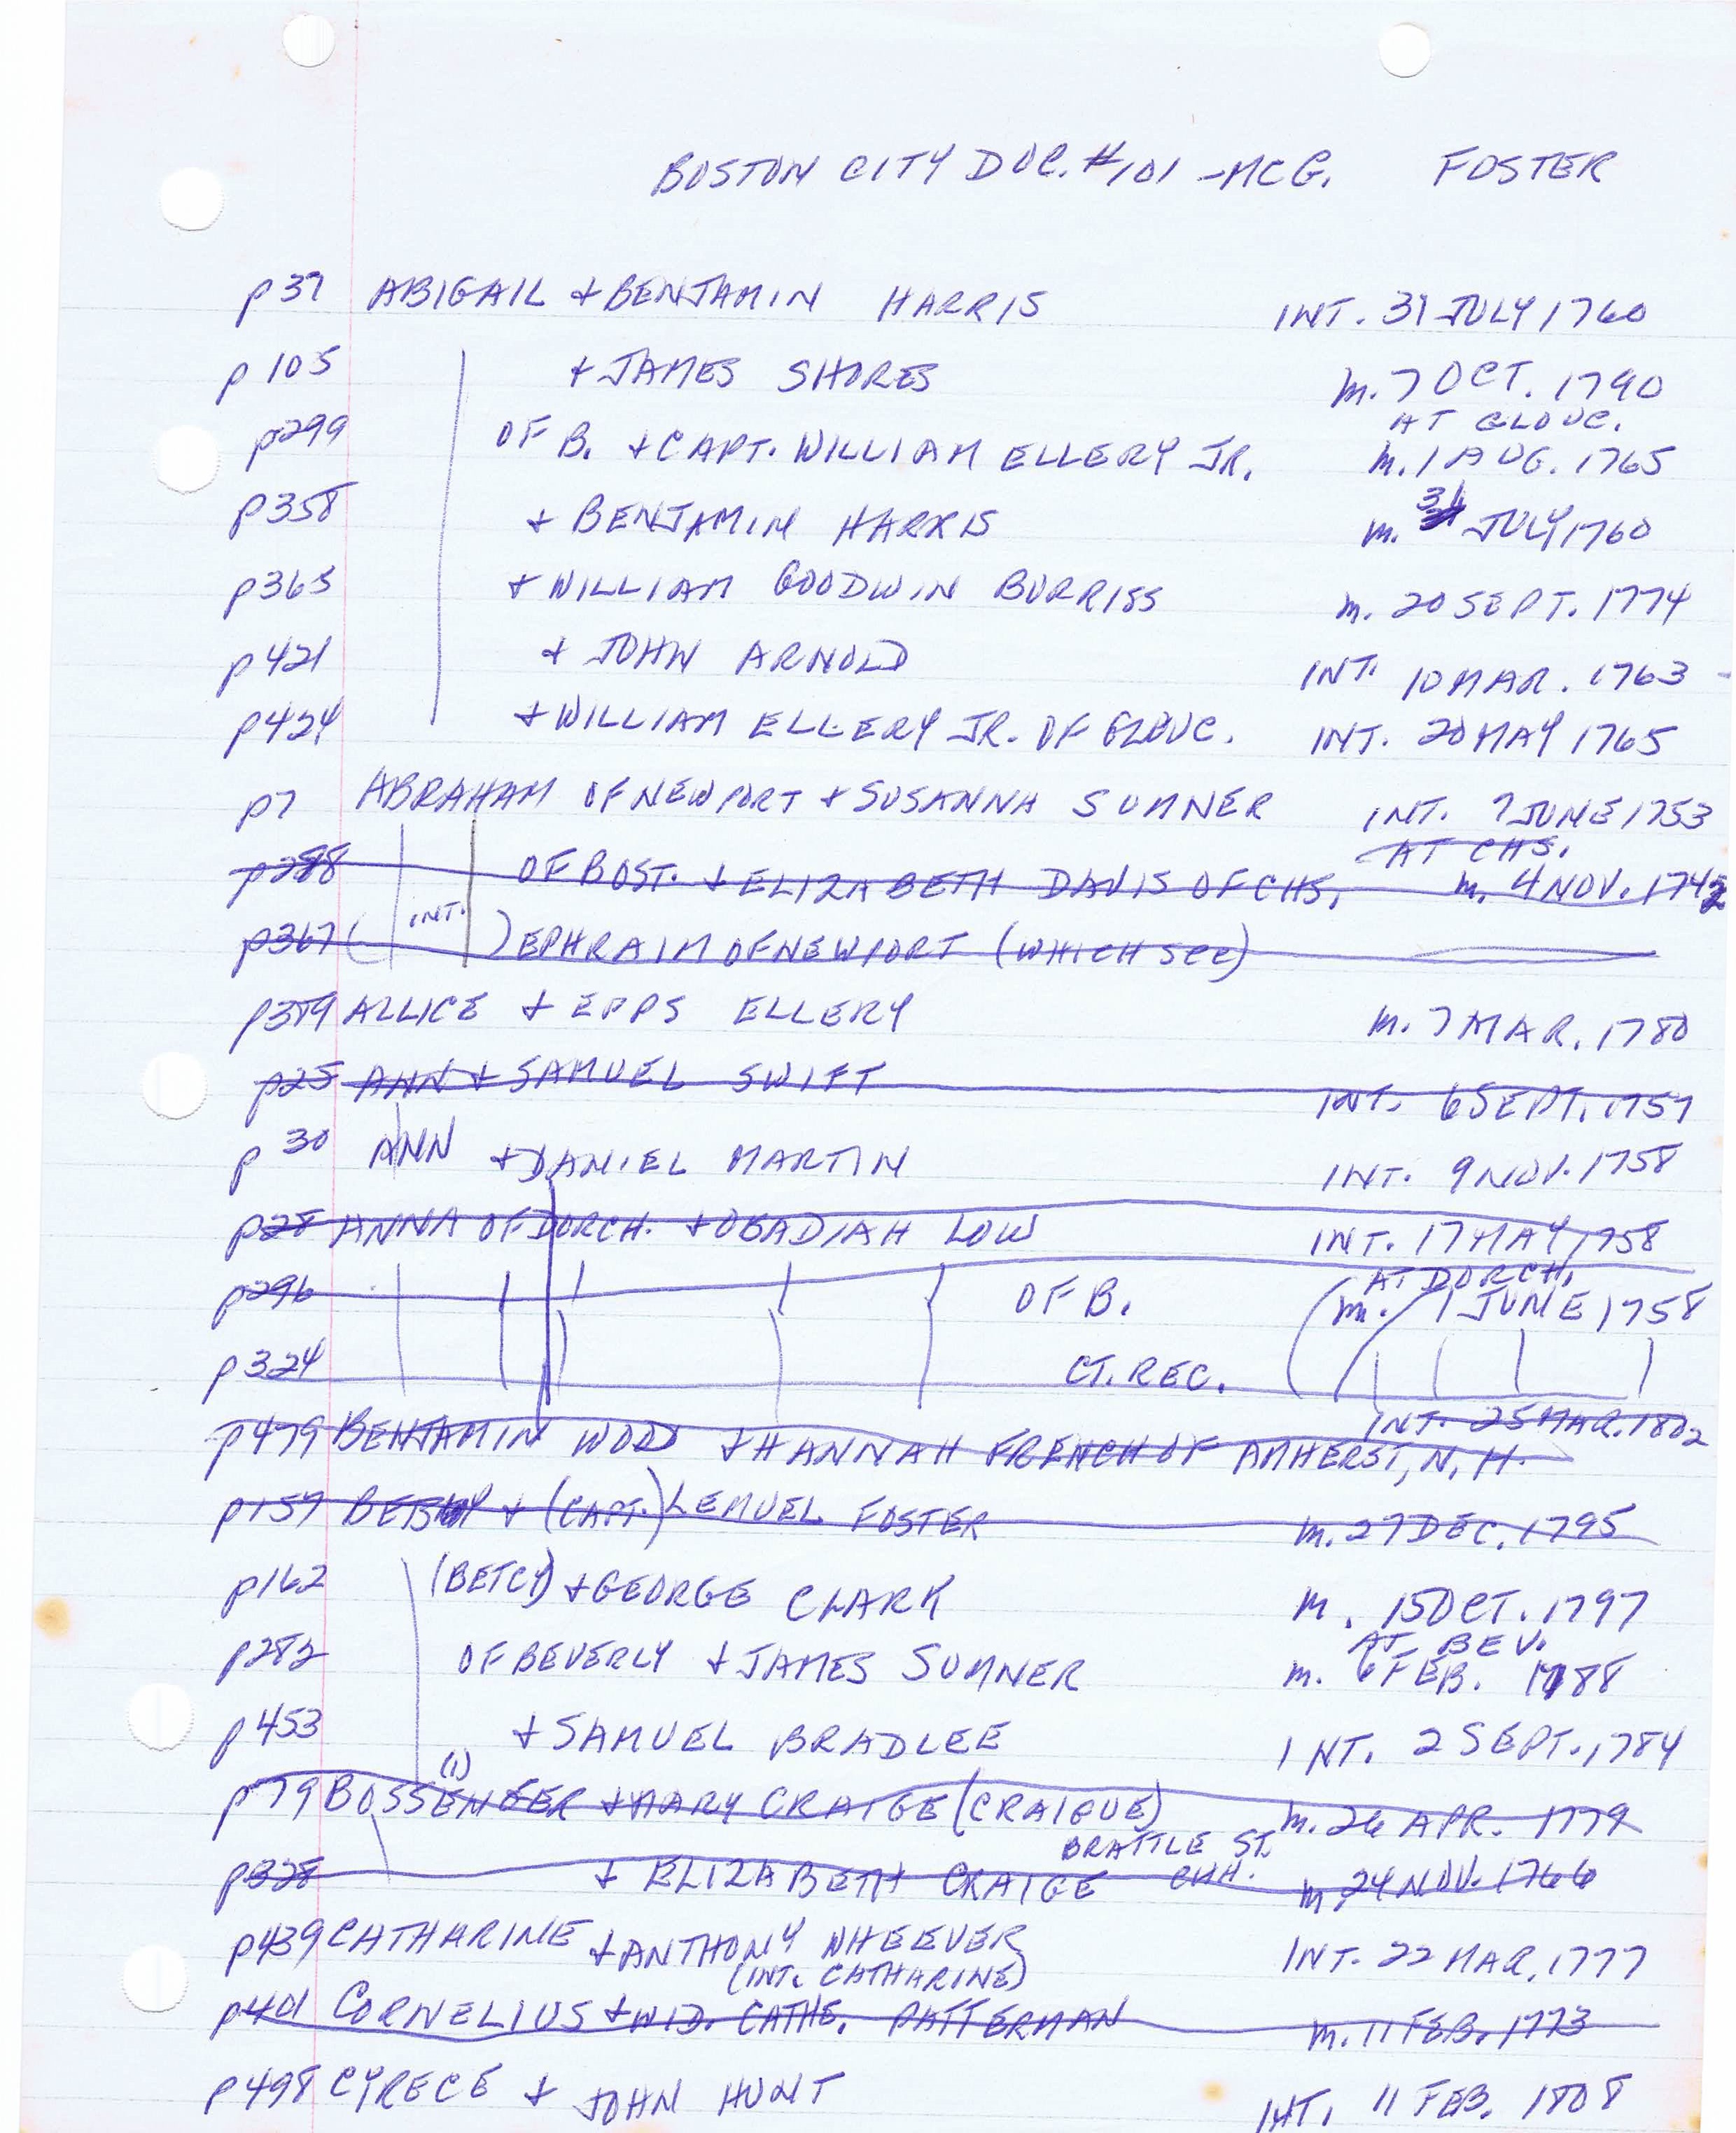 BOSTON CITY DOC. #101 - MCG. FOSTER
p37 ABIGAIL + BENJAMIN HARRIS INT. 31 JULY 1760
p105 + JAMES SHORES m. 7 OCT. 1790
AT GLOUC.
p299 OF B. + CAPT. WILLIAM ELLERY JR. m. 1 AUG. 1765
p358 + BENJAMIN HARRIS m. 31 JULY 1760
p365 + WILLIAM GOODWIN BURRISS m. 20 SEPT. 1774
p421 + JOHN ARNOLD INT. 10 MAR. 1763
p424 + WILLIAM ELLERY JR. OF GLOUC. INT. 20 MAY 1765
p7 ABRAHAM OF NEWPORT + SUSANNA SUMNER INT. 7 JUNE 1753
AT CHS.
p288 OF BOST. + ELIZABETH DAVIS OF CHS. m. 4 NOV. 1742
p367 ( INT. ) EPHRAIM OF NEWPORT (WHICH SEE)
ALLICE + EPPS ELLERY m. 7 MAR. 1780
p25 ANN + SAMUEL SWIFT INT. 6 SEPT. 1757
p30 ANN + DANIEL MARTIN INT. 9 NOV. 1758
p28 ANNA OF DORCH. + OBADIAH LOW INT. 17 MAY 1758
AT DORCH.
p296 OF B. (m. 1 JUNE 1758
p324 CT. REC. (
INT. 25 MAR. 1802
p479 BENJAMIN WOOD + HANNAH FRENCH OF AMHERST, N.H.
p159 BETSY + (CAPT.) LEMUEL FOSTER m. 27 DEC. 1795
p162 (BETCY) + GEORGE CLARK m. 15 OCT. 1797
AT BEV.
p282 OF BEVERLY + JAMES SUMNER m. 6 FEB. 1788
p453 + SAMUEL BRADLEE INT. 2 SEPT. 1784
(1)
p79 BOSSENGER + MARY CRAIGE (CRAIGUE) m. 26 APR. 1779
BRATTLE ST.
p328 + ELIZABETH CRAIGE CHH. m. 24 NOV. 1766
p439 CATHARINE + ANTHONY WHEEVER INT. 22 MAR. 1777
(INT. CATHARINE)
p401 CORNELIUS + WID. CATHE. PATTERMAN m. 11 FEB. 1773
p498 CYRECE + JOHN HUNT INT. 11 FEB. 1808